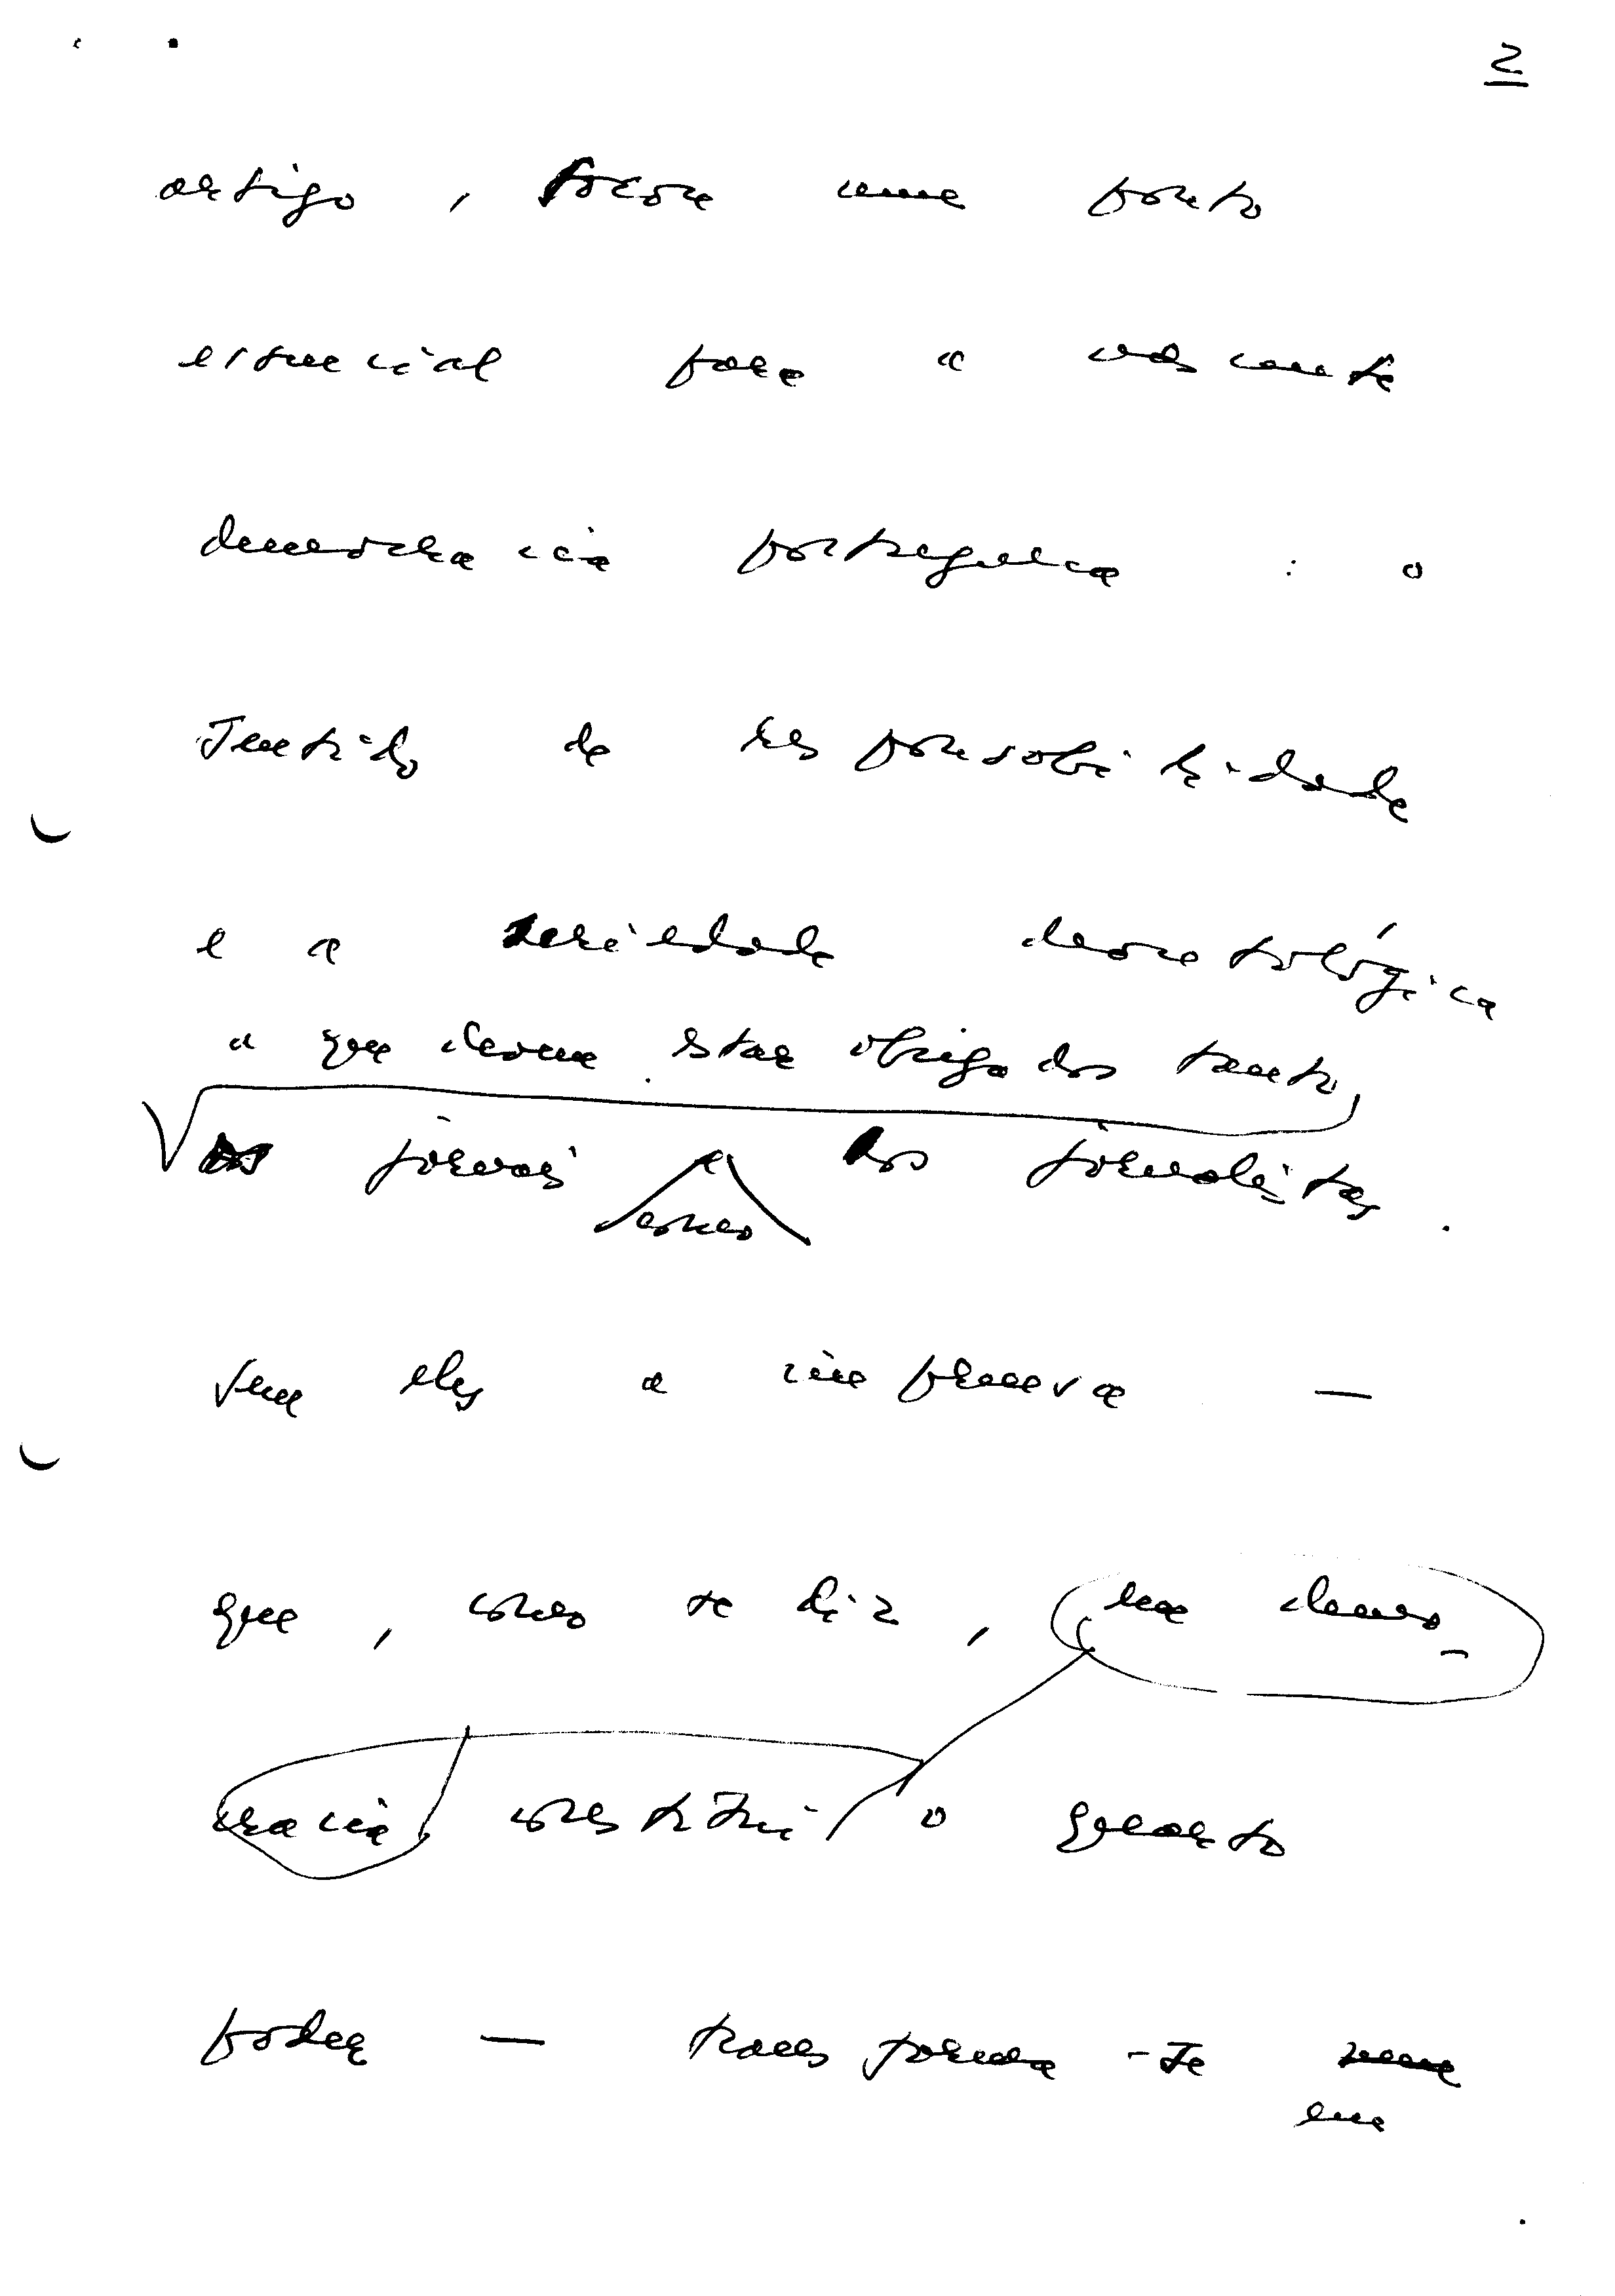 2
artigo, focou um ponto
essencial para a nascente
democracia portuguesa : o
sentido de responsabilidade
e a seriedade deontológica
a que devem estar obrigados tanto
os jornais como os jornalistas.
Sem eles a imprensa —
que, como se diz, na demo-
cracia constitui o quarto
poder — transforma-se
em